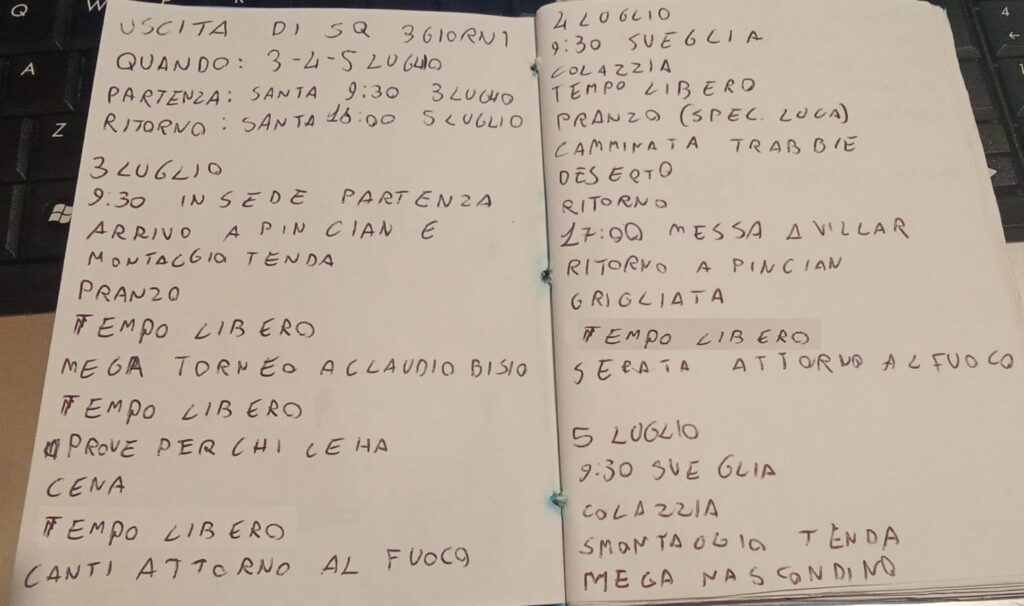 USCITA DI SQ 3 GIORNI
QUANDO: 3-4-5 LUGLIO
PARTENZA: SANTA 9:30 3 LUGLIO
RITORNO: SANTA 16:00 5 LUGLIO
3 LUGLIO
9:30 IN SEDE PARTENZA
ARRIVO A PIN CIAN E
MONTAGGIO TENDA
PRANZO
TEMPO LIBERO
MEGA TORNEO A CLAUDIO BISIO
TEMPO LIBERO
PROVE PER CHI LE HA
CENA
TEMPO LIBERO
CANTI ATTORNO AL FUOCO
4 LUGLIO
9:30 SVEGLIA
COLAZZIA
TEMPO LIBERO
PRANZO (SPEC. LUCA)
CAMMINATA TRABBIE
DESERTO
RITORNO
17:00 MESSA A VILLAR
RITORNO A PINCIAN
GRIGLIATA
TEMPO LIBERO
SERATA ATTORNO AL FUOCO
5 LUGLIO
9:30 SVEGLIA
COLAZZIA
SMONTAGGIO TENDA
MEGA NASCONDINO